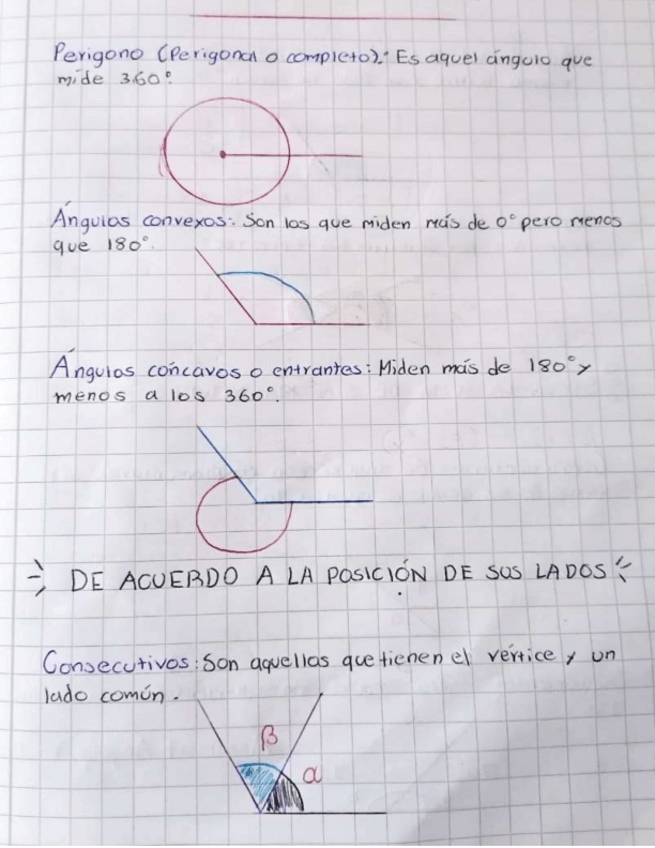 Perigono (Perigonal o completo): Es aquel ángulo que
mide 360°.
Ángulos convexos: Son los que miden más de 0° pero menos
que 180°.
Ángulos cóncavos o entrantes: Miden más de 180° y
menos a los 360°.
DE ACUERDO A LA POSICIÓN DE SUS LADOS
Consecutivos: Son aquellos que tienen el vértice y un
lado común.
β
α